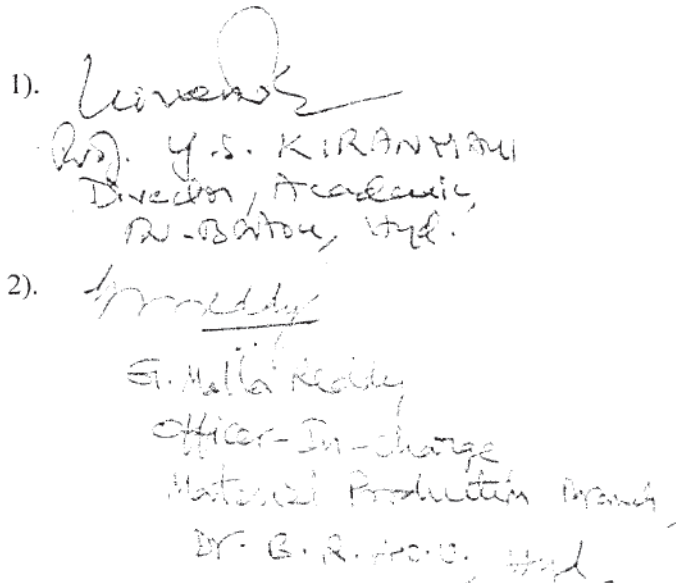 1).
Prof. Y.S. KIRANMAYI
Director, Academic,
Hyd.
2).
G. Malla Reddy
Officer-In-charge
Material Production Branch,
Dr. B.R.A.O.U., Hyd.